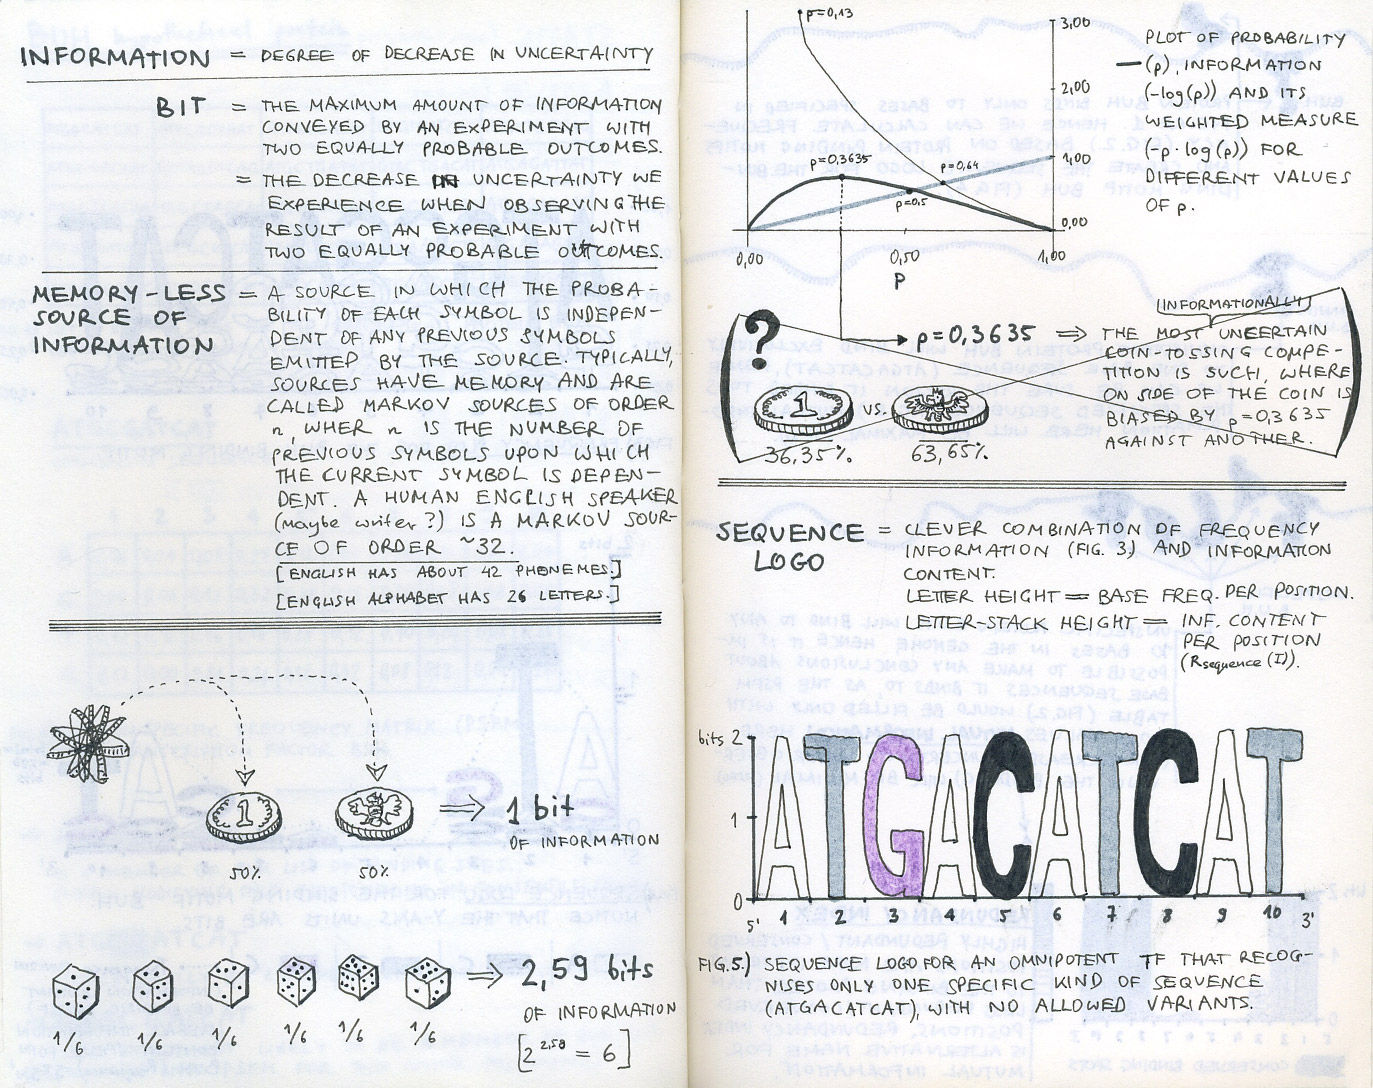 INFORMATION = DEGREE OF DECREASE IN UNCERTAINTY
BIT = THE MAXIMUM AMOUNT OF INFORMATION
CONVEYED BY AN EXPERIMENT WITH
TWO EQUALLY PROBABLE OUTCOMES.
= THE DECREASE IN UNCERTAINTY WE
EXPERIENCE WHEN OBSERVING THE
RESULT OF AN EXPERIMENT WITH
TWO EQUALLY PROBABLE OUTCOMES.
MEMORY-LESS = A SOURCE IN WHICH THE PROBA-
SOURCE OF BILITY OF EACH SYMBOL IS INDEPEN-
INFORMATION DENT OF ANY PREVIOUS SYMBOLS
EMITED BY THE SOURCE. TYPICALLY,
SOURCES HAVE MEMORY AND ARE
CALLED MARKOV SOURCES OF ORDER
n, WHER n IS THE NUMBER OF
PREVIOUS SYMBOLS UPON WHICH
THE CURRENT SYMBOL IS DEPEN-
DENT. A HUMAN ENGLISH SPEAKER
(maybe writer?) IS A MARKOV SOUR-
CE OF ORDER ~32.
[ENGLISH HAS ABOUT 42 PHONEMES.]
[ENGLISH ALPHABET HAS 26 LETTERS.]
1
⇒ 1 bit
OF INFORMATION
50% 50%
⇒ 2,59 bits
OF INFORMATION
1/6 1/6 1/6 1/6 1/6 1/6
[2^2,58 = 6]
p=0,13
3,00
2,00
1,00
0,00
p=0,3635
p=0,64
p=0,5
0,00 0,50 1,00
P
PLOT OF PROBABILITY
(p), INFORMATION
(-log(p)) AND ITS
WEIGHTED MEASURE
(-p·log(p)) FOR
DIFFERENT VALUES
OF p.
?
p=0,3635 ⇒
(INFORMATIONALLY)
THE MOST UNCERTAIN
COIN-TOSSING COMPE-
TITION IS SUCH, WHERE
ON SIDE OF THE COIN IS
BIASED BY p=0,3635
AGAINST ANOTHER.
1 VS.
36,35% 63,65%
SEQUENCE = CLEVER COMBINATION OF FREQUENCY
LOGO INFORMATION (FIG. 3.) AND INFORMATION
CONTENT.
LETTER HEIGHT = BASE FREQ. PER POSITION.
LETTER-STACK HEIGHT = INF. CONTENT
PER POSITION
(Rsequence (I)).
bits 2
1
0
ATGACATCAT
5' 1 2 3 4 5 6 7 8 9 10 3'
FIG.5.) SEQUENCE LOGO FOR AN OMNIPOTENT TF THAT RECOG-
NISES ONLY ONE SPECIFIC KIND OF SEQUENCE
(ATGACATCAT), WITH NO ALLOWED VARIANTS.